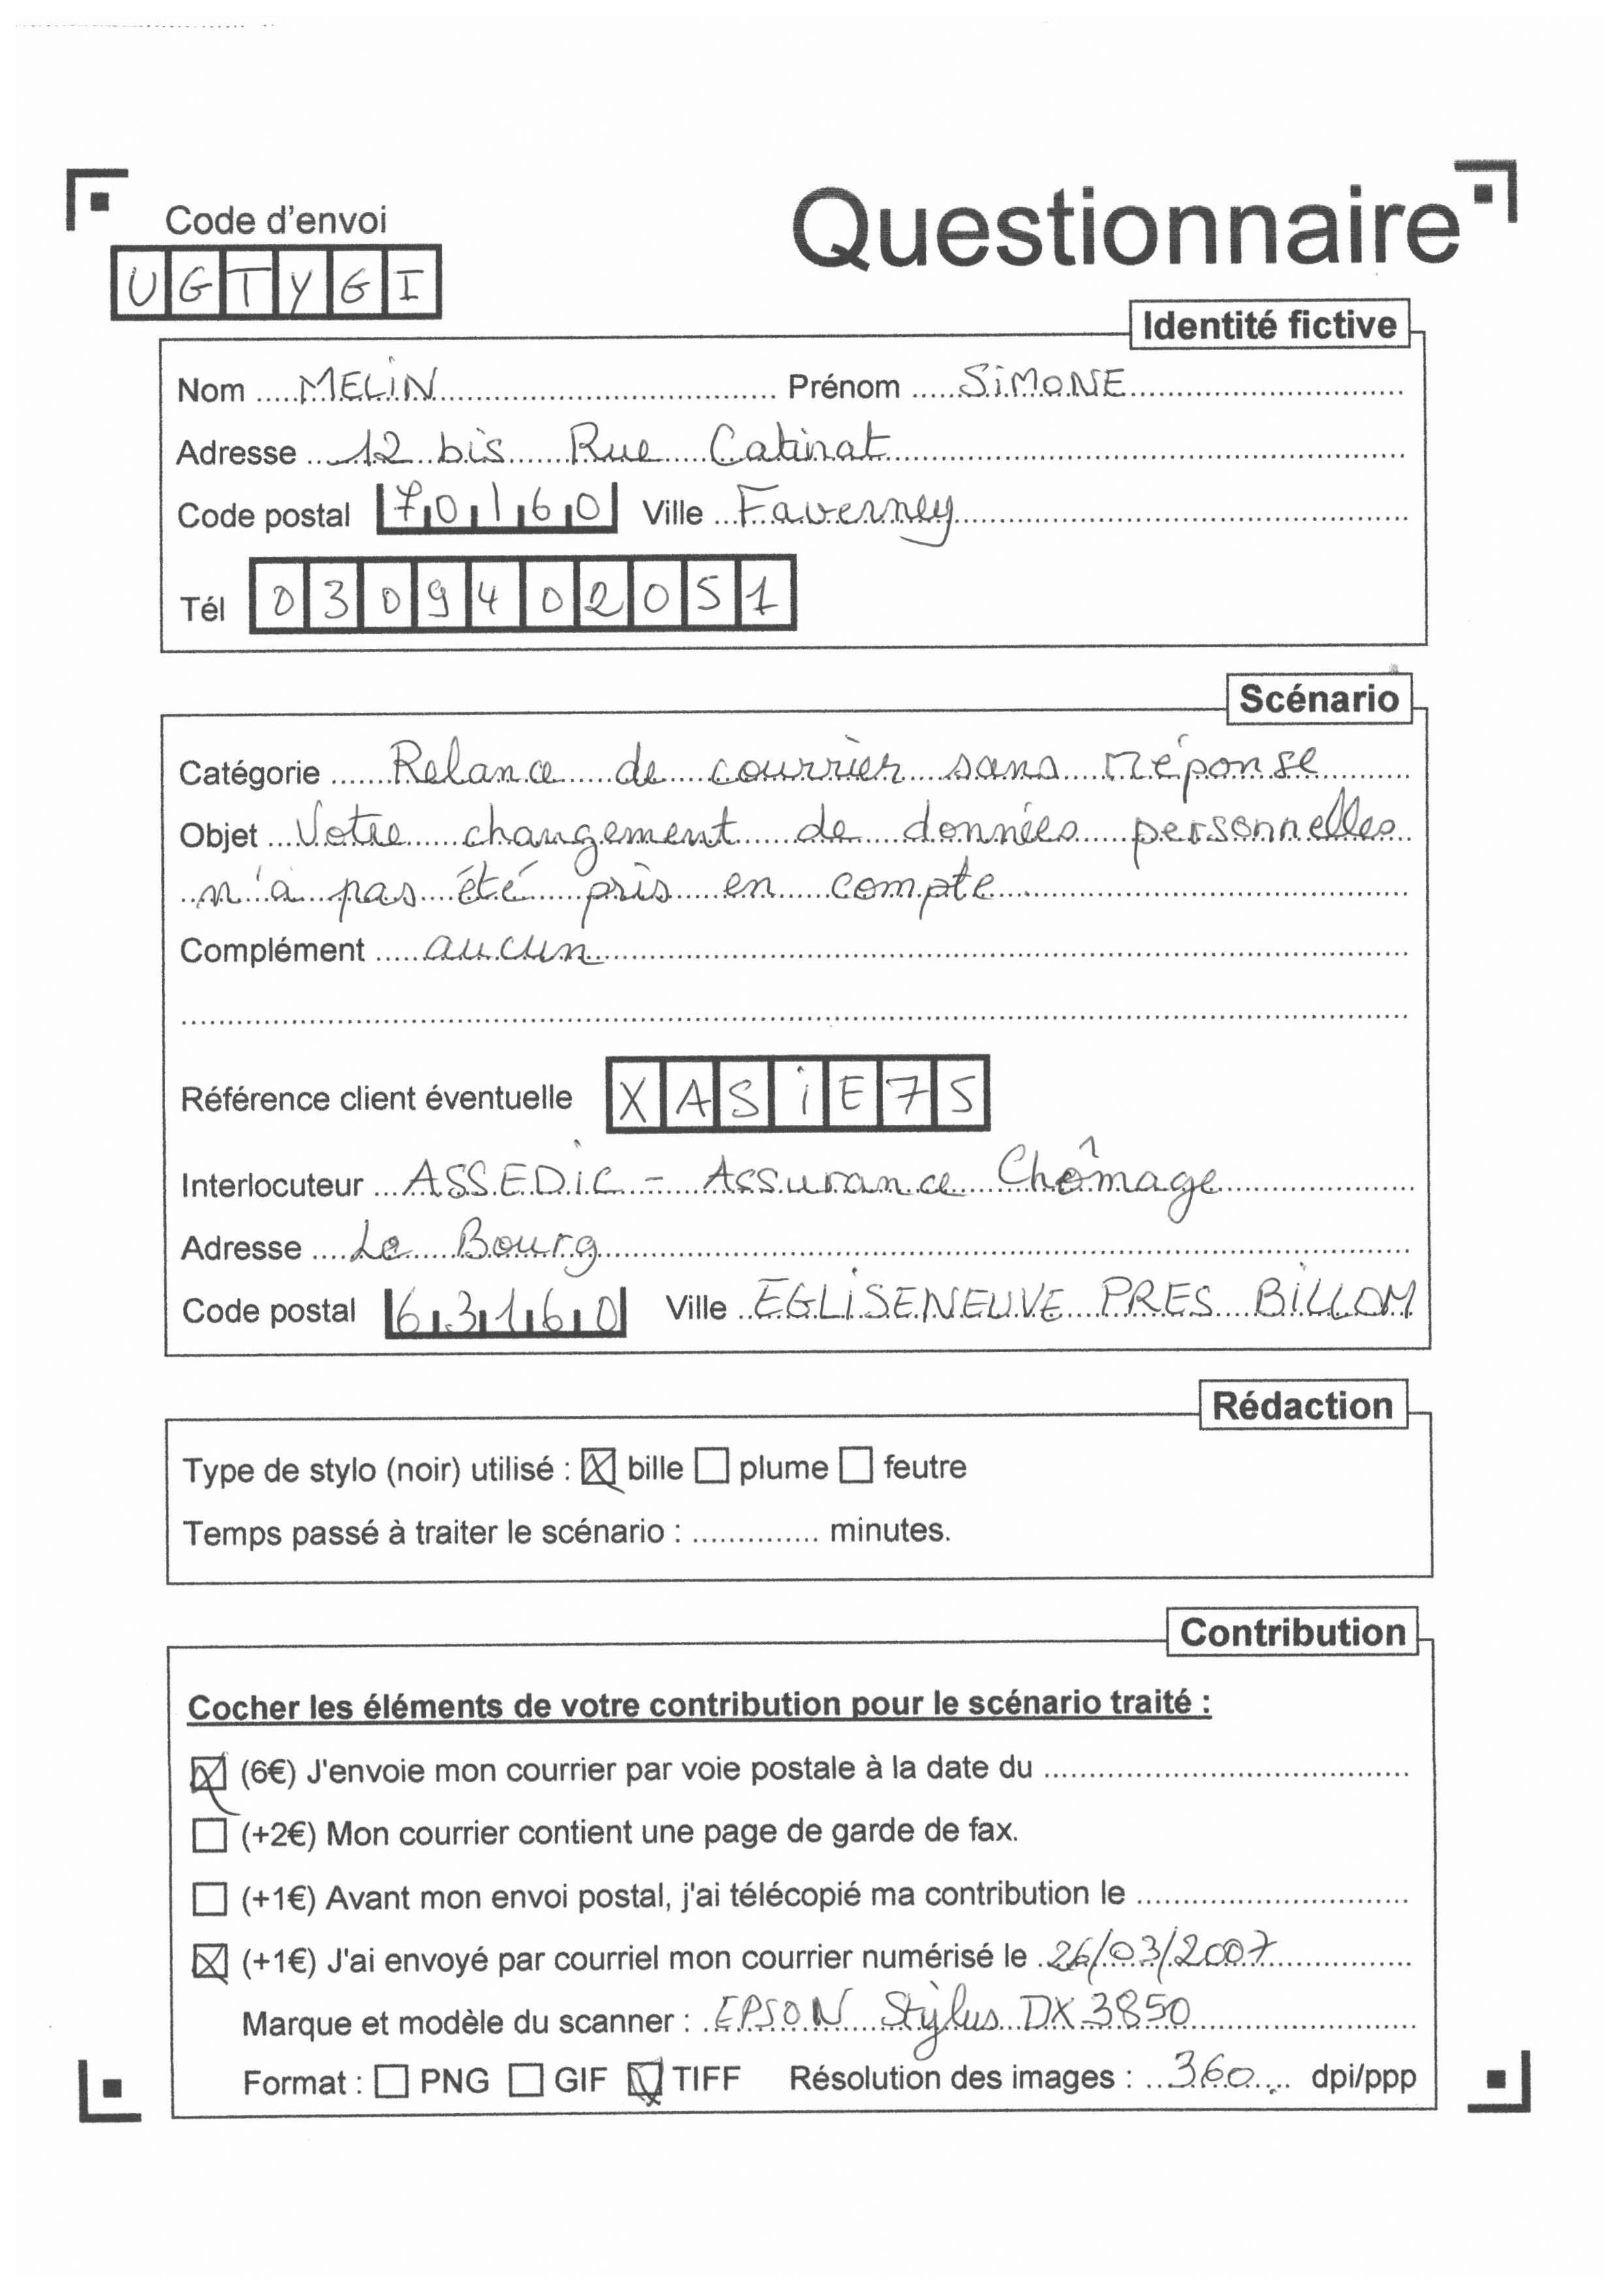 Code d'envoi
Questionnaire
UGTYGI
Identité fictive
Nom MELIN Prénom SiMONE
Adresse 12 bis Rue Catinat
Code postal 70160 Ville Faverney
Tél 0309402051
Scénario
Catégorie Relance de courrier sans réponse
Objet Votre changement de données personnelles
n'a pas été pris en compte
Complément aucun
Référence client éventuelle XASiE75
Interlocuteur ASSEDiC - Assurance Chômage
Adresse Le Bourg
Code postal 63160 Ville EGLiSENEUVE PRES BiLLOM
Rédaction
Type de stylo (noir) utilisé : ☒ bille ☐ plume ☐ feutre
Temps passé à traiter le scénario : .............. minutes.
Contribution
Cocher les éléments de votre contribution pour le scénario traité :
☒ (6€) J'envoie mon courrier par voie postale à la date du
☐ (+2€) Mon courrier contient une page de garde de fax.
☐ (+1€) Avant mon envoi postal, j'ai télécopié ma contribution le
☒ (+1€) J'ai envoyé par courriel mon courrier numérisé le 26/03/2007
Marque et modèle du scanner : EPSON Stylus DX 3850
Format : ☐ PNG ☐ GIF ☒ TIFF Résolution des images : 360 dpi/ppp